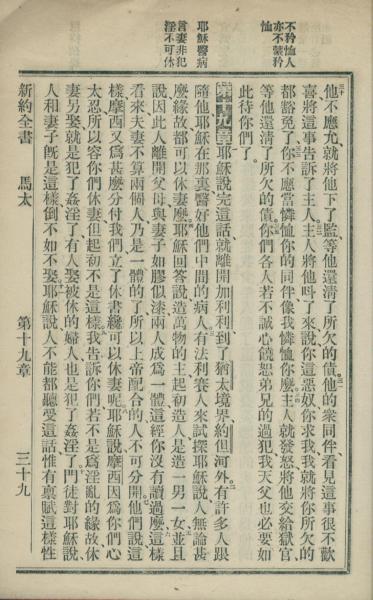 不矜恤人
亦不蒙矜
恤
耶穌醫病
言妻非犯
淫不可休
他不應允就將他下了監等他還清了所欠的債他的衆同伴看見這事很不歡
喜將這事告訴了主人主人將他呌了來說你這惡奴你求我我就將你所欠的
都豁免了你不應當憐恤你的同伴像我憐恤你麼主人就發怒將他交給獄官
等他還清了所欠的債你們各人若不誠心饒恕弟兄的過犯我天父也必要如
此待你們了
第十九章耶穌說完這話就離開加利利到了猶太境界約但河外有許多人跟
隨他耶穌在那裏醫好他們中間的病人有法利賽人來試探耶穌說人無論甚
麼緣故都可以休妻麼耶穌回答說造萬物的主起初造人是造一男一女並且
說因此人離開父母與妻子如膠似漆兩人成爲一體這經你沒有讀過麼這樣
看來夫妻不算兩個人乃是一體的了所以上帝配合的人不可分開他們說這
樣摩西又爲甚麼分付我們立了休書纔可以休妻呢耶穌說摩西因爲你們心
太忍所以容你們休妻但起初不是這樣我告訴你們若不是爲淫亂的緣故休
妻另娶就是犯了姦淫了有人娶被休的婦人也是犯了姦淫了門徒對耶穌說
人和妻子旣是這樣倒不如不娶耶穌說人不能都聽受這話惟有稟賦這樣性
新約全書 馬太 第十九章 三十九